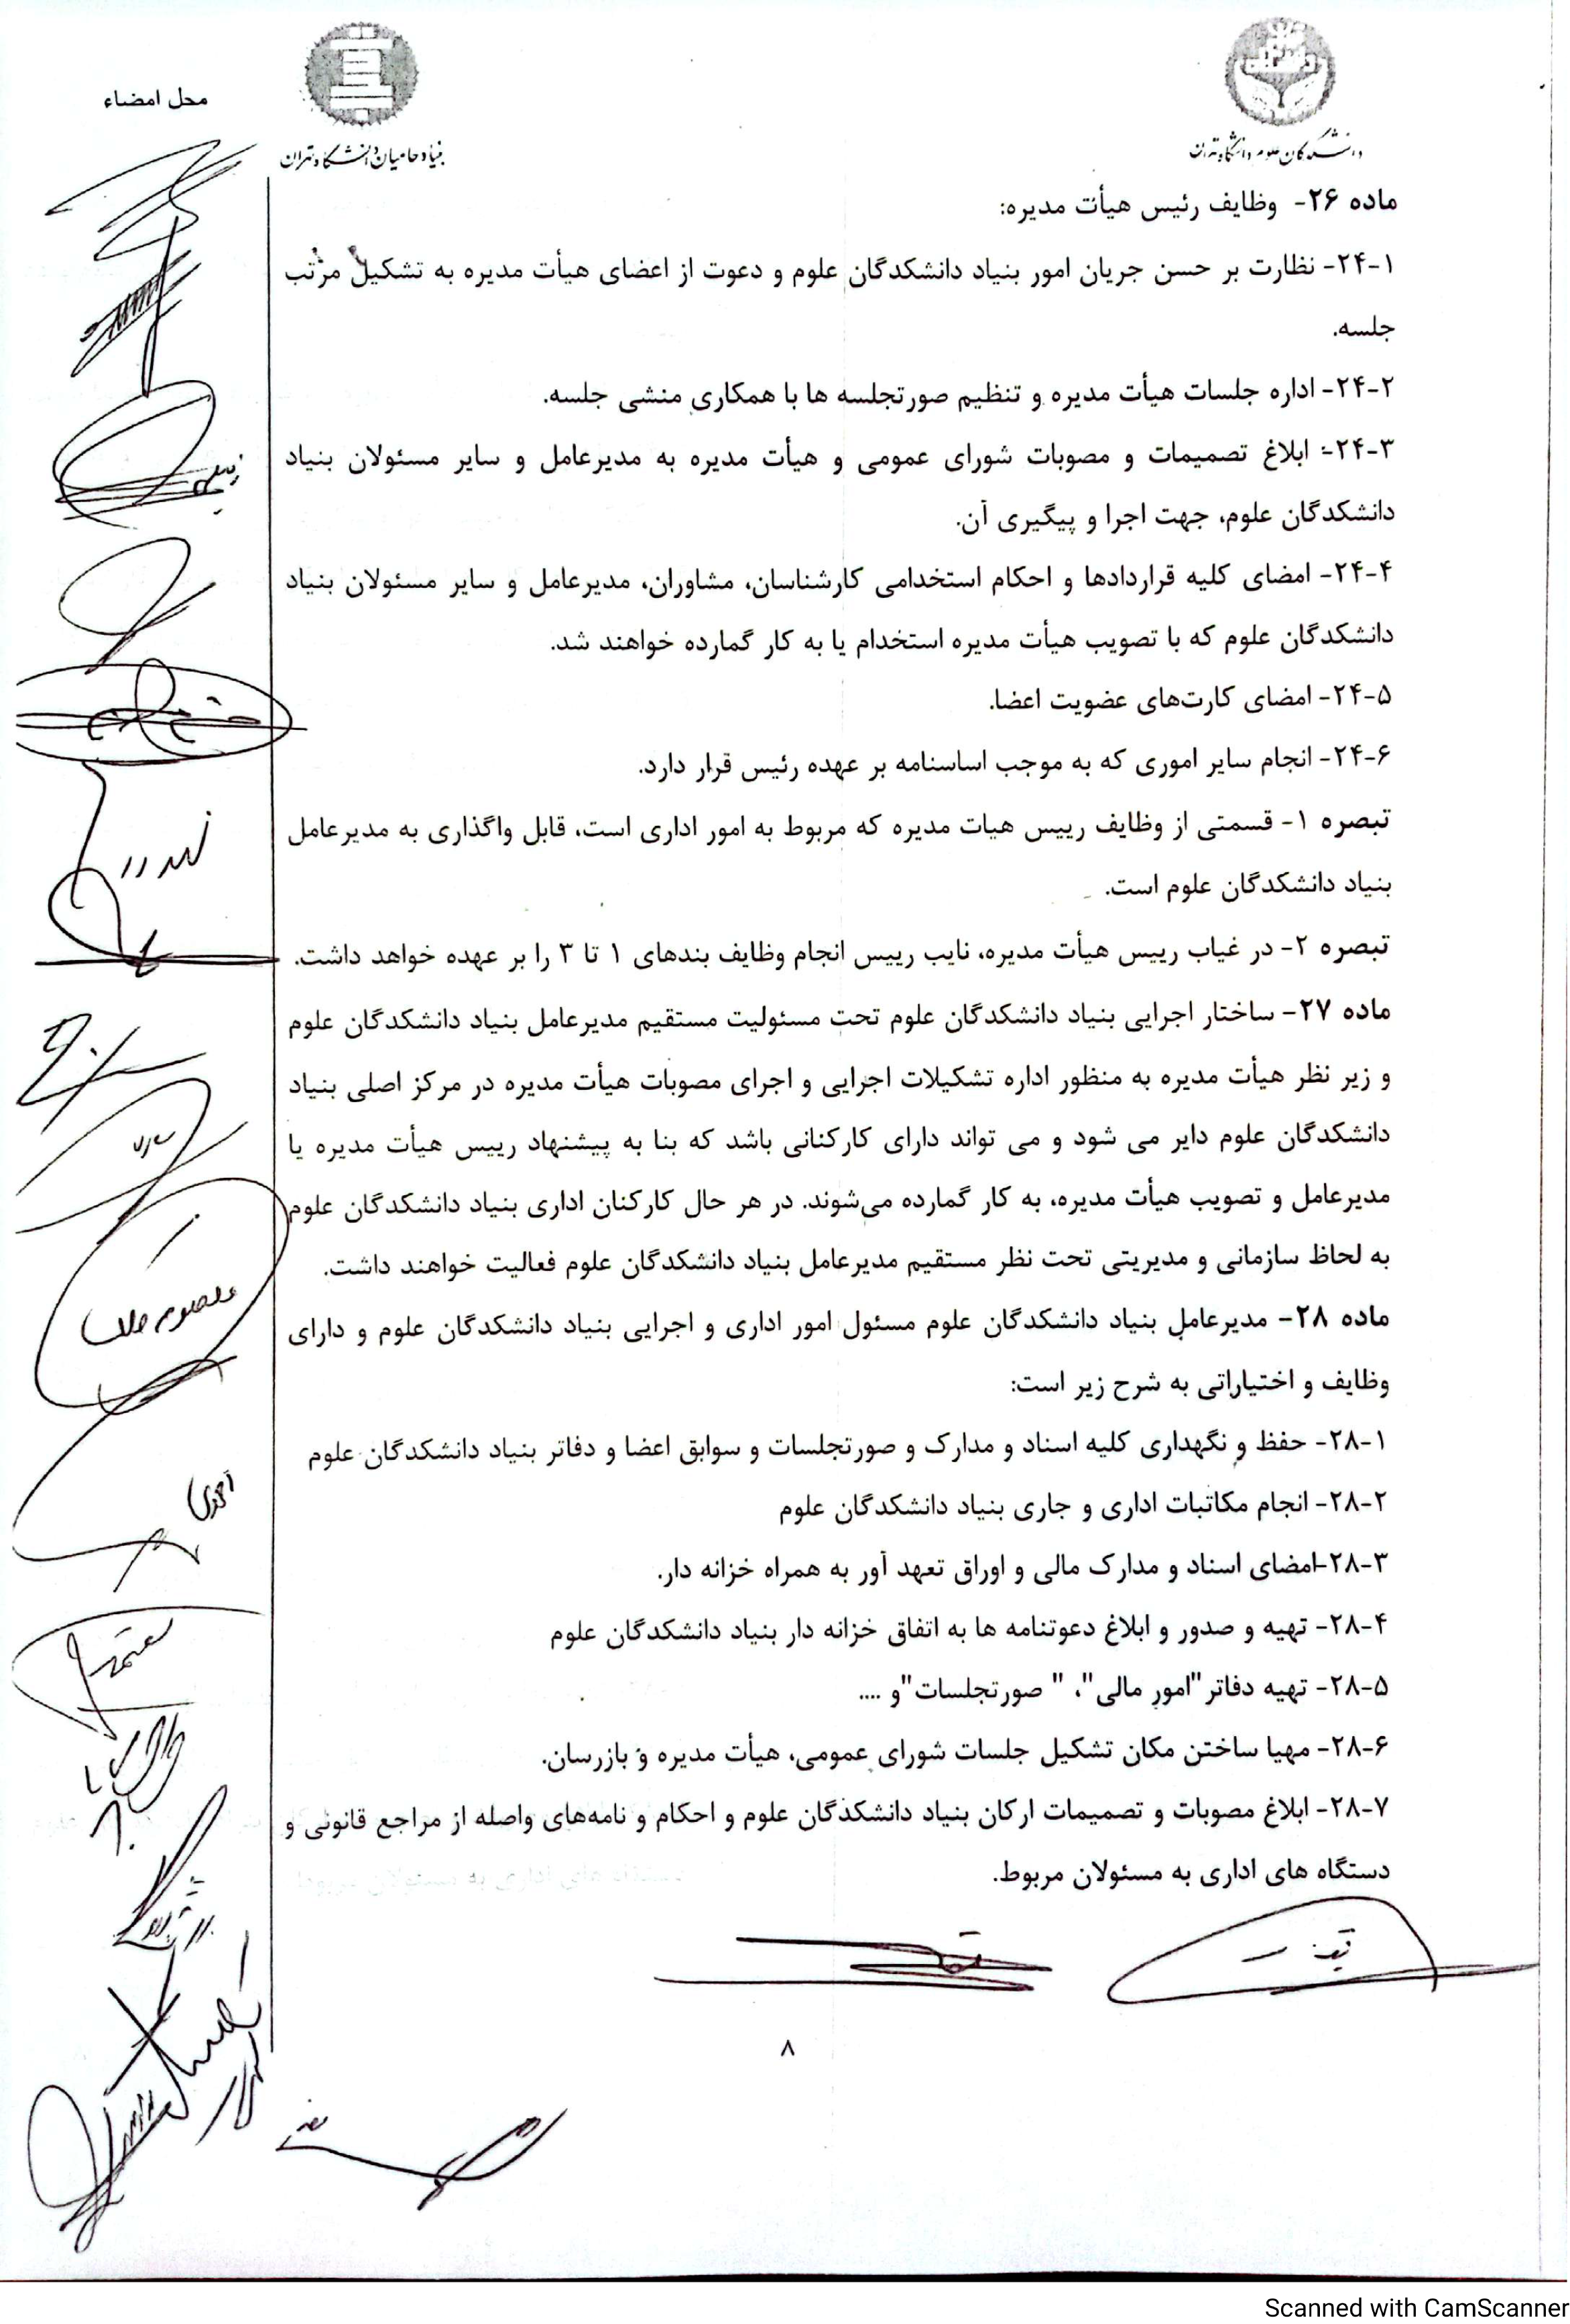 محل امضاء
بنیاد حامیان دانشگاه تهران
دانشکدگان علوم دانشگاه تهران
ماده ۲۶- وظایف رئیس هیأت مدیره:
۲۴-۱- نظارت بر حسن جریان امور بنیاد دانشکدگان علوم و دعوت از اعضای هیأت مدیره به تشکیل مرتب
جلسه.
۲۴-۲- اداره جلسات هیأت مدیره و تنظیم صورتجلسه ها با همکاری منشی جلسه.
۲۴-۳- ابلاغ تصمیمات و مصوبات شورای عمومی و هیأت مدیره به مدیرعامل و سایر مسئولان بنیاد
دانشکدگان علوم، جهت اجرا و پیگیری آن.
۲۴-۴- امضای کلیه قراردادها و احکام استخدامی کارشناسان، مشاوران، مدیرعامل و سایر مسئولان بنیاد
دانشکدگان علوم که با تصویب هیأت مدیره استخدام یا به کار گمارده خواهند شد.
۲۴-۵- امضای کارت‌های عضویت اعضا.
۲۴-۶- انجام سایر اموری که به موجب اساسنامه بر عهده رئیس قرار دارد.
تبصره ۱- قسمتی از وظایف رییس هیات مدیره که مربوط به امور اداری است، قابل واگذاری به مدیرعامل
بنیاد دانشکدگان علوم است.
تبصره ۲- در غیاب رییس هیأت مدیره، نایب رییس انجام وظایف بندهای ۱ تا ۳ را بر عهده خواهد داشت.
ماده ۲۷- ساختار اجرایی بنیاد دانشکدگان علوم تحت مسئولیت مستقیم مدیرعامل بنیاد دانشکدگان علوم
و زیر نظر هیأت مدیره به منظور اداره تشکیلات اجرایی و اجرای مصوبات هیأت مدیره در مرکز اصلی بنیاد
دانشکدگان علوم دایر می شود و می تواند دارای کارکنانی باشد که بنا به پیشنهاد رییس هیأت مدیره یا
مدیرعامل و تصویب هیأت مدیره، به کار گمارده می‌شوند. در هر حال کارکنان اداری بنیاد دانشکدگان علوم
به لحاظ سازمانی و مدیریتی تحت نظر مستقیم مدیرعامل بنیاد دانشکدگان علوم فعالیت خواهند داشت.
ماده ۲۸- مدیرعامل بنیاد دانشکدگان علوم مسئول امور اداری و اجرایی بنیاد دانشکدگان علوم و دارای
وظایف و اختیاراتی به شرح زیر است:
۲۸-۱- حفظ و نگهداری کلیه اسناد و مدارک و صورتجلسات و سوابق اعضا و دفاتر بنیاد دانشکدگان علوم
۲۸-۲- انجام مکاتبات اداری و جاری بنیاد دانشکدگان علوم
۲۸-۳-امضای اسناد و مدارک مالی و اوراق تعهد آور به همراه خزانه دار.
۲۸-۴- تهیه و صدور و ابلاغ دعوتنامه ها به اتفاق خزانه دار بنیاد دانشکدگان علوم
۲۸-۵- تهیه دفاتر"امور مالی"، " صورتجلسات"و ....
۲۸-۶- مهیا ساختن مکان تشکیل جلسات شورای عمومی، هیأت مدیره و بازرسان.
۲۸-۷- ابلاغ مصوبات و تصمیمات ارکان بنیاد دانشکدگان علوم و احکام و نامه‌های واصله از مراجع قانونی و
دستگاه های اداری به مسئولان مربوط.
۸
Scanned with CamScanner